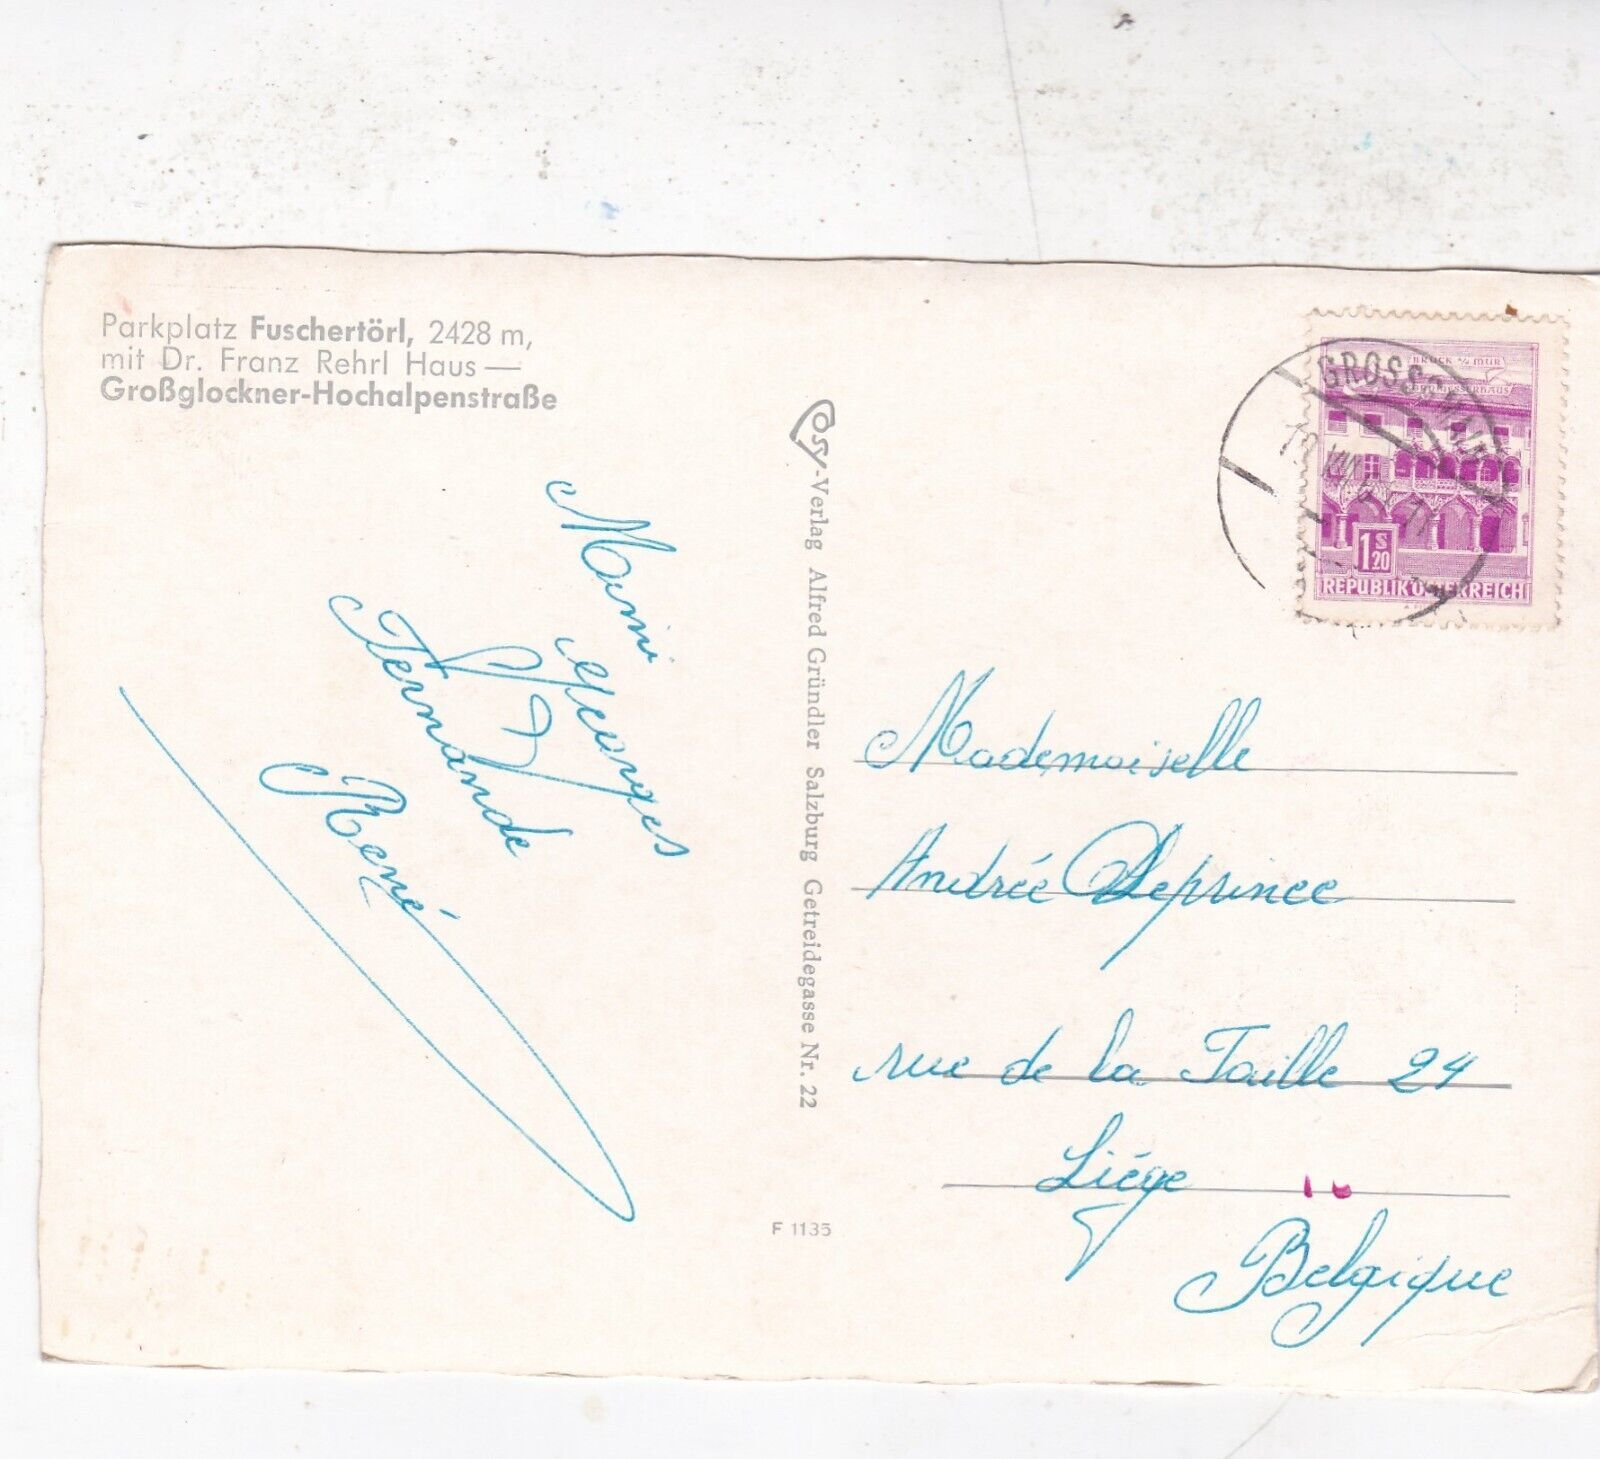 Parkplatz Fuschertörl, 2428 m,
mit Dr. Franz Rehrl Haus —
Großglockner-Hochalpenstraße
Mimi
Georges
Fernande
René
Cosy-Verlag Alfred Gründler Salzburg Getreidegasse Nr. 22
F 1135
BRUCK a/d MUR
KORNMESSERHAUS
1 S 20
REPUBLIK ÖSTERREICH
Mademoiselle
Andrée Deprince
rue de la Taille 24
Liége
Belgique